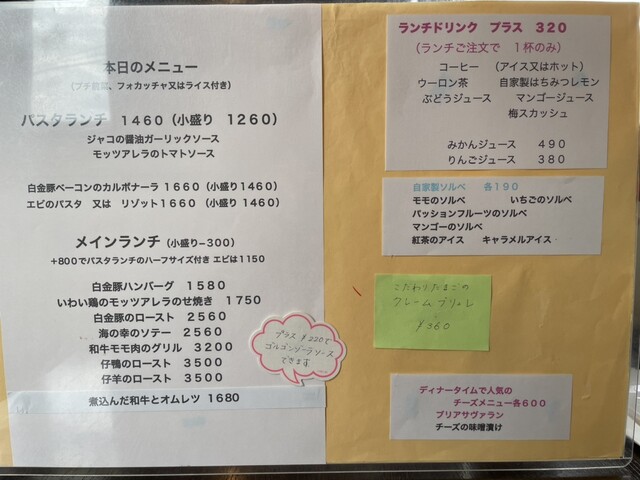 本日のメニュー
(プチ前菜、フォカッチャ又はライス付き)
パスタランチ 1460(小盛り 1260)
ジャコの醤油ガーリックソース
モッツアレラのトマトソース
白金豚ベーコンのカルボナーラ 1660(小盛り1460)
エビのパスタ 又は リゾット1660 (小盛り 1460)
メインランチ(小盛り−300)
+800でパスタランチのハーフサイズ付き エビは1150
白金豚ハンバーグ 1580
いわい鶏のモッツアレラのせ焼き 1750
白金豚のロースト 2560
海の幸のソテー 2560
和牛モモ肉のグリル 3200
仔鴨のロースト 3500
仔羊のロースト 3500
煮込んだ和牛とオムレツ 1680
プラス ¥220で
ゴルゴンゾーラソース
できます
ランチドリンク プラス 320
(ランチご注文で 1杯のみ)
コーヒー (アイス又はホット)
ウーロン茶 自家製はちみつレモン
ぶどうジュース マンゴージュース
梅スカッシュ
みかんジュース 490
りんごジュース 380
自家製ソルベ 各190
モモのソルベ いちごのソルベ
パッションフルーツのソルベ
マンゴーのソルベ
紅茶のアイス キャラメルアイス
こだわりたまごの
クレームブリュレ
¥360
ディナータイムで人気の
チーズメニュー各600
ブリアサヴァラン
チーズの味噌漬け